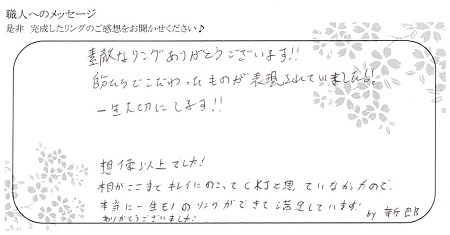 職人へのメッセージ
是非 完成したリングのご感想をお聞かせください♪
素敵なリングありがとうございます!!
こだわったものが表現されていました!
一生大切にします!!
想像以上でした!
相がここまでキレイにのこってくると思っていなかったので、
本当に一生モノのリングができて満足しています!
ありがとうございました!
by 新郎